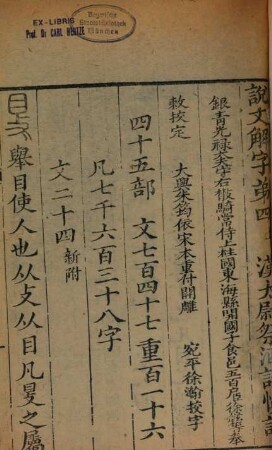 EX-LIBRIS
Prof. Dr. CARL HENTZE
Bayerische
Staatsbibliothek
München
說文解字弟四 漢太尉祭酒許慎記
銀青光祿大夫守右散騎常侍上柱國東海縣開國子食邑五百戶徐鉉等奉
敕校定 大興朱筠依宋本重付開雕 宛平徐瀚校字
四十五部 文七百四十七 重百一十六
凡七千六百三十八字
文二十四新附
舉目使人也从攴从目凡𥄎之屬